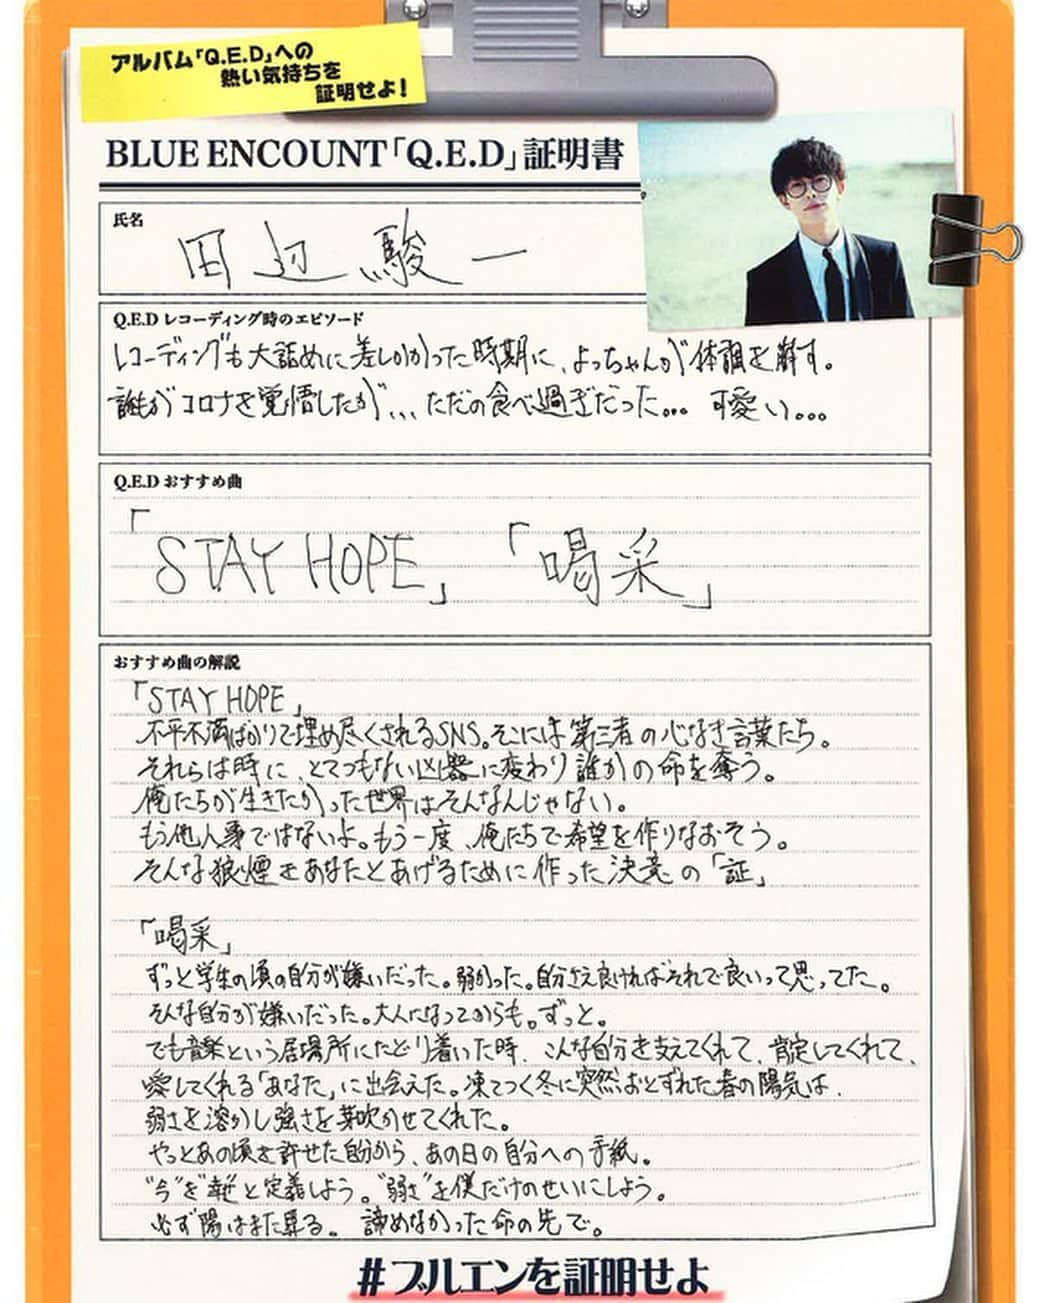 アルバム「Q.E.D」への
熱い気持ちを
証明せよ！
BLUE ENCOUNT「Q.E.D」証明書
氏名
田辺駿一
Q.E.D レコーディング時のエピソード
レコーディングも大詰めに差しかかった時期に、よっちゃんが体調を崩す。
誰もがコロナを覚悟したが、、、ただの食べ過ぎだった。。。 可愛い。。。
Q.E.D おすすめ曲
「STAY HOPE」「喝采」
おすすめ曲の解説
「STAY HOPE」
不平不満ばかりで埋め尽くされるSNS。そこには第三者の心なき言葉たち。
それらは時に、とてつもない凶器に変わり誰かの命を奪う。
俺たちが生きたかった世界はそんなんじゃない。
もう他人事ではないよ。もう一度、俺たちで希望を作りなおそう。
そんな狼煙をあなたとあげるために作った決意の「証」
「喝采」
ずっと学生の頃の自分が嫌いだった。弱かった。自分さえ良ければそれで良いって思ってた。
そんな自分が嫌いだった。大人になってからも。ずっと。
でも音楽という居場所にたどり着いた時、こんな自分を支えてくれて、肯定してくれて、
愛してくれる「あなた」に出会えた。凍てつく冬に突然おとずれた春の陽気は、
弱さを溶かし強さを芽吹かせてくれた。
やっとあの頃を許せた自分から、あの日の自分への手紙。
"今"を"幸せ"と定義しよう。"弱さ"を僕だけのせいにしよう。
必ず陽はまた昇る。 諦めなかった命の先で。
#ブルエンを証明せよ